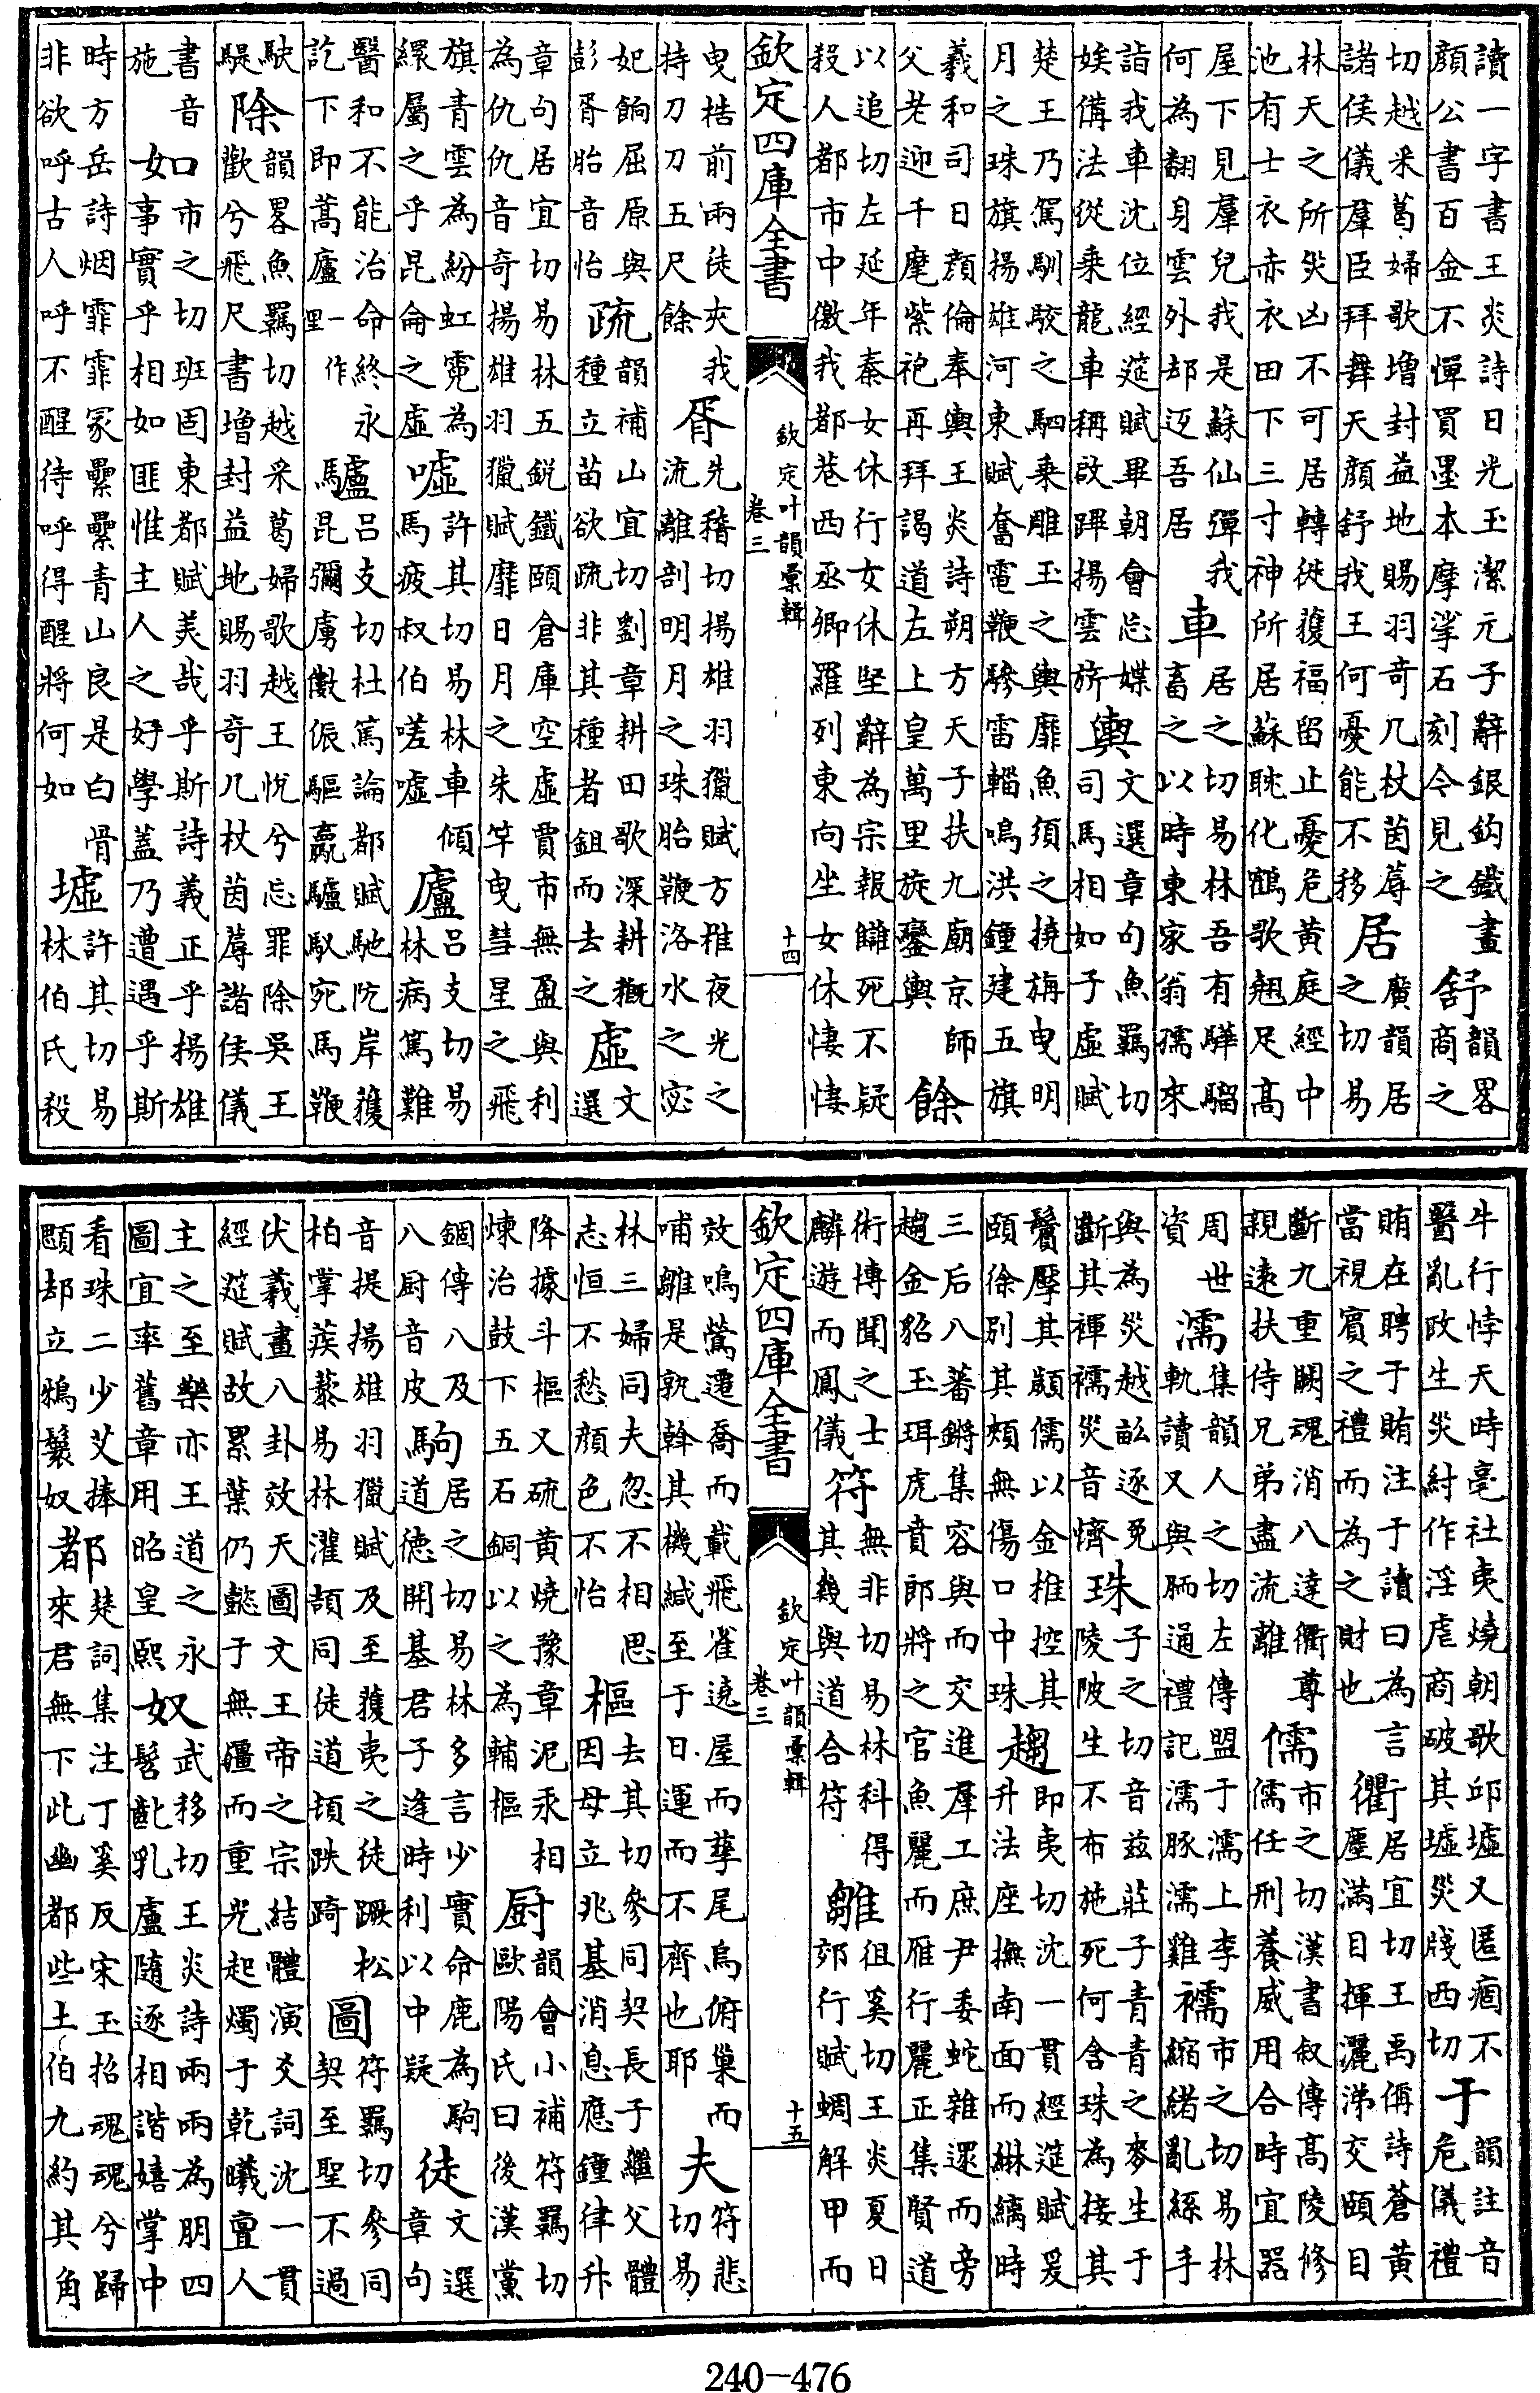 讀一字書王炎詩日光玉潔元子辭銀鈎鐵畫顔公書百金不憚買墨本摩挲石刻令見之舒韻畧商之
切越采葛婦歌增封益地賜羽奇几杖茵蓐諸侯儀羣臣拜舞天顔舒我王何憂能不移居廣韻居之切易
林天之所災凶不可居轉徙獲福留止憂危黃庭經中池有士衣赤衣田下三寸神所居蘇眺化鶴歌翹足高
屋下見羣兒我是蘇仙彈我何為翻身雲外却返吾居車居之切易林吾有驊騮畜之以時東家翁孺來
詣我車沈位經筵賦畢朝會忘媟娭備法從乘龍車稱啟蹕揚雲旂輿文選章句魚羈切司馬相如子虛賦
楚王乃駕馴駮之駟乘雕玉之輿靡魚須之撓旃曳明月之珠旗揚雄河東賦奮電鞭驂雷輜鳴洪鐘建五旗
羲和司日顔倫奉輿王炎詩朔方天子扶九廟京師父老迎千麾紫袍再拜謁道左上皇萬里旋鑾輿餘
以追切左延年秦女休行女休堅辭為宗報讎死不疑殺人都市中徼我都巷西丞卿羅列東向坐女休悽悽
欽定四庫全書
欽定叶韻彙輯
卷三
十四
曳梏前兩徒夾我持刀刀五尺餘胥先稽切揚雄羽獵賦方椎夜光之流離剖明月之珠胎鞭洛水之宓
妃餉屈原與彭胥胎音怡疏韻補山宜切劉章耕田歌深耕穊種立苗欲疏非其種者鉏而去之虛文選
章句居宜切易林五銳鐵頤倉庫空虛賈市無盈與利為仇仇音奇揚雄羽獵賦靡日月之朱竿曳彗星之飛
旗青雲為紛虹霓為繯屬之乎昆侖之虛噓許其切易林車傾馬疲叔伯嗟噓廬呂支切易林病篤難
醫和不能治命終永訖下即蒿廬一作里驢呂支切杜篤論都賦馳阬岸獲昆彌虜儌侲驅驘驢馭宛馬鞭
駃騠除韻畧魚羈切越采葛婦歌越王悅兮忘罪除吳王歡兮飛尺書增封益地賜羽奇几杖茵蓐諸侯儀
書音施如市之切班固東都賦美哉乎斯詩義正乎揚雄事實乎相如匪惟主人之好學蓋乃遭遇乎斯
時方岳詩烟霏霏冢纍纍青山良是白骨非欲呼古人呼不醒待呼得醒將何如墟許其切易林伯氏殺
牛行悖天時亳社夷燒朝歌邱墟又匿痼不醫亂政生災紂作淫虐商破其墟災牋西切于韻註音危儀禮
賄在聘于賄注于讀曰為言當視賓之禮而為之財也衢居宜切王禹偁詩蒼黃塵滿目揮灑涕交頤目
斷九重闕魂消八達衢尊親遠扶侍兄弟盡流離儒市之切漢書叙傳高陵修儒任刑養威用合時宜器
周世資濡集韻人之切左傳盟于濡上李軌讀又與胹通禮記濡豚濡雞襦市之切易林縮緒亂絲手
與為災越畝逐兔斷其褌襦災音懠珠子之切音兹莊子青青之麥生于陵陂生不布施死何含珠為接其
鬢擪其顪儒以金椎控其頤徐別其頰無傷口中珠趨即夷切沈一貫經筵賦爰升法座撫南面而綝纚時
三后八蕃鏘集容與而交進羣工庶尹委蛇雜遝而旁趨金貂玉珥虎賁郎將之官魚麗而雁行麗正集賢道
術博聞之士麟遊而鳳儀符無非切易林科得其幾與道合符雛徂奚切王炎夏日郊行賦蜩解甲而
欽定四庫全書
欽定叶韻彙輯
卷三
十五
效鳴鶯遷喬而載飛雀遶屋而孳尾烏俯巢而哺雛是孰斡其機緘至于日運而不齊也耶夫符悲切易
林三婦同夫忽不相思志恒不愁顔色不怡樞去其切參同契長子繼父體因母立兆基消息應鍾律升
降據斗樞又硫黃燒豫章泥汞相煉治鼓下五石銅以之為輔樞厨韻會小補符羈切歐陽氏曰後漢黨
錮傳八及八厨音皮駒居之切易林多言少實命鹿為駒道德開基君子逢時利以中疑徒文選章句
音提揚雄羽獵賦及至獲夷之徒蹶松柏掌蒺藜易林濯頡同徒道頓跌踦圖符羈切參同契至聖不過
伏羲畫八卦效天圖文王帝之宗結體演爻詞沈一貫經筵賦故累葉仍懿于無疆而重光起燭于乾曦亶人
主之至樂亦王道之永圖宜率舊章用昭皇熙奴武移切王炎詩兩兩為朋四髫齔乳盧隨逐相諧嬉掌中
看珠二少艾捧顋却立鴉鬟奴都楚詞集注丁奚反宋玉招魂魂兮歸來君無下此幽都些土伯九約其角
240-476